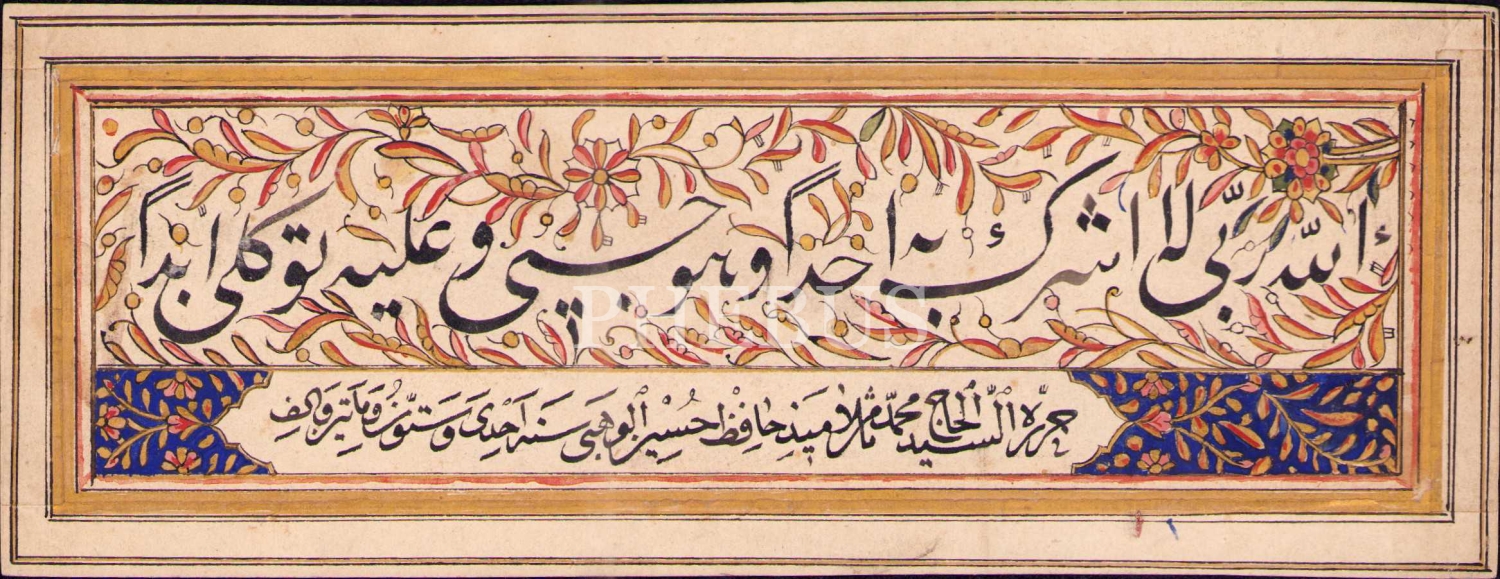 الله ربّي لا اشرك به احداً وهو حسبي وعليه توكلي ابداً
PHEBUS
حرّره السّيد الحاج محمّد من تلاميذ حافظ حسين الوهبى سنه احدى وستّون ومايتين والف